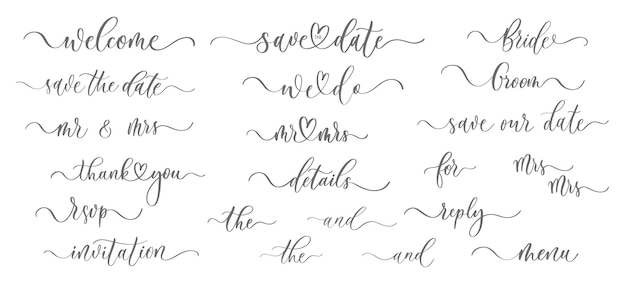 welcome
save the date
mr & mrs
thank you
rsvp
invitation
save THE date
we do
mr mrs
details
the and
the and
Bride
Groom
save our date
for Mrs
Mrs
reply
menu